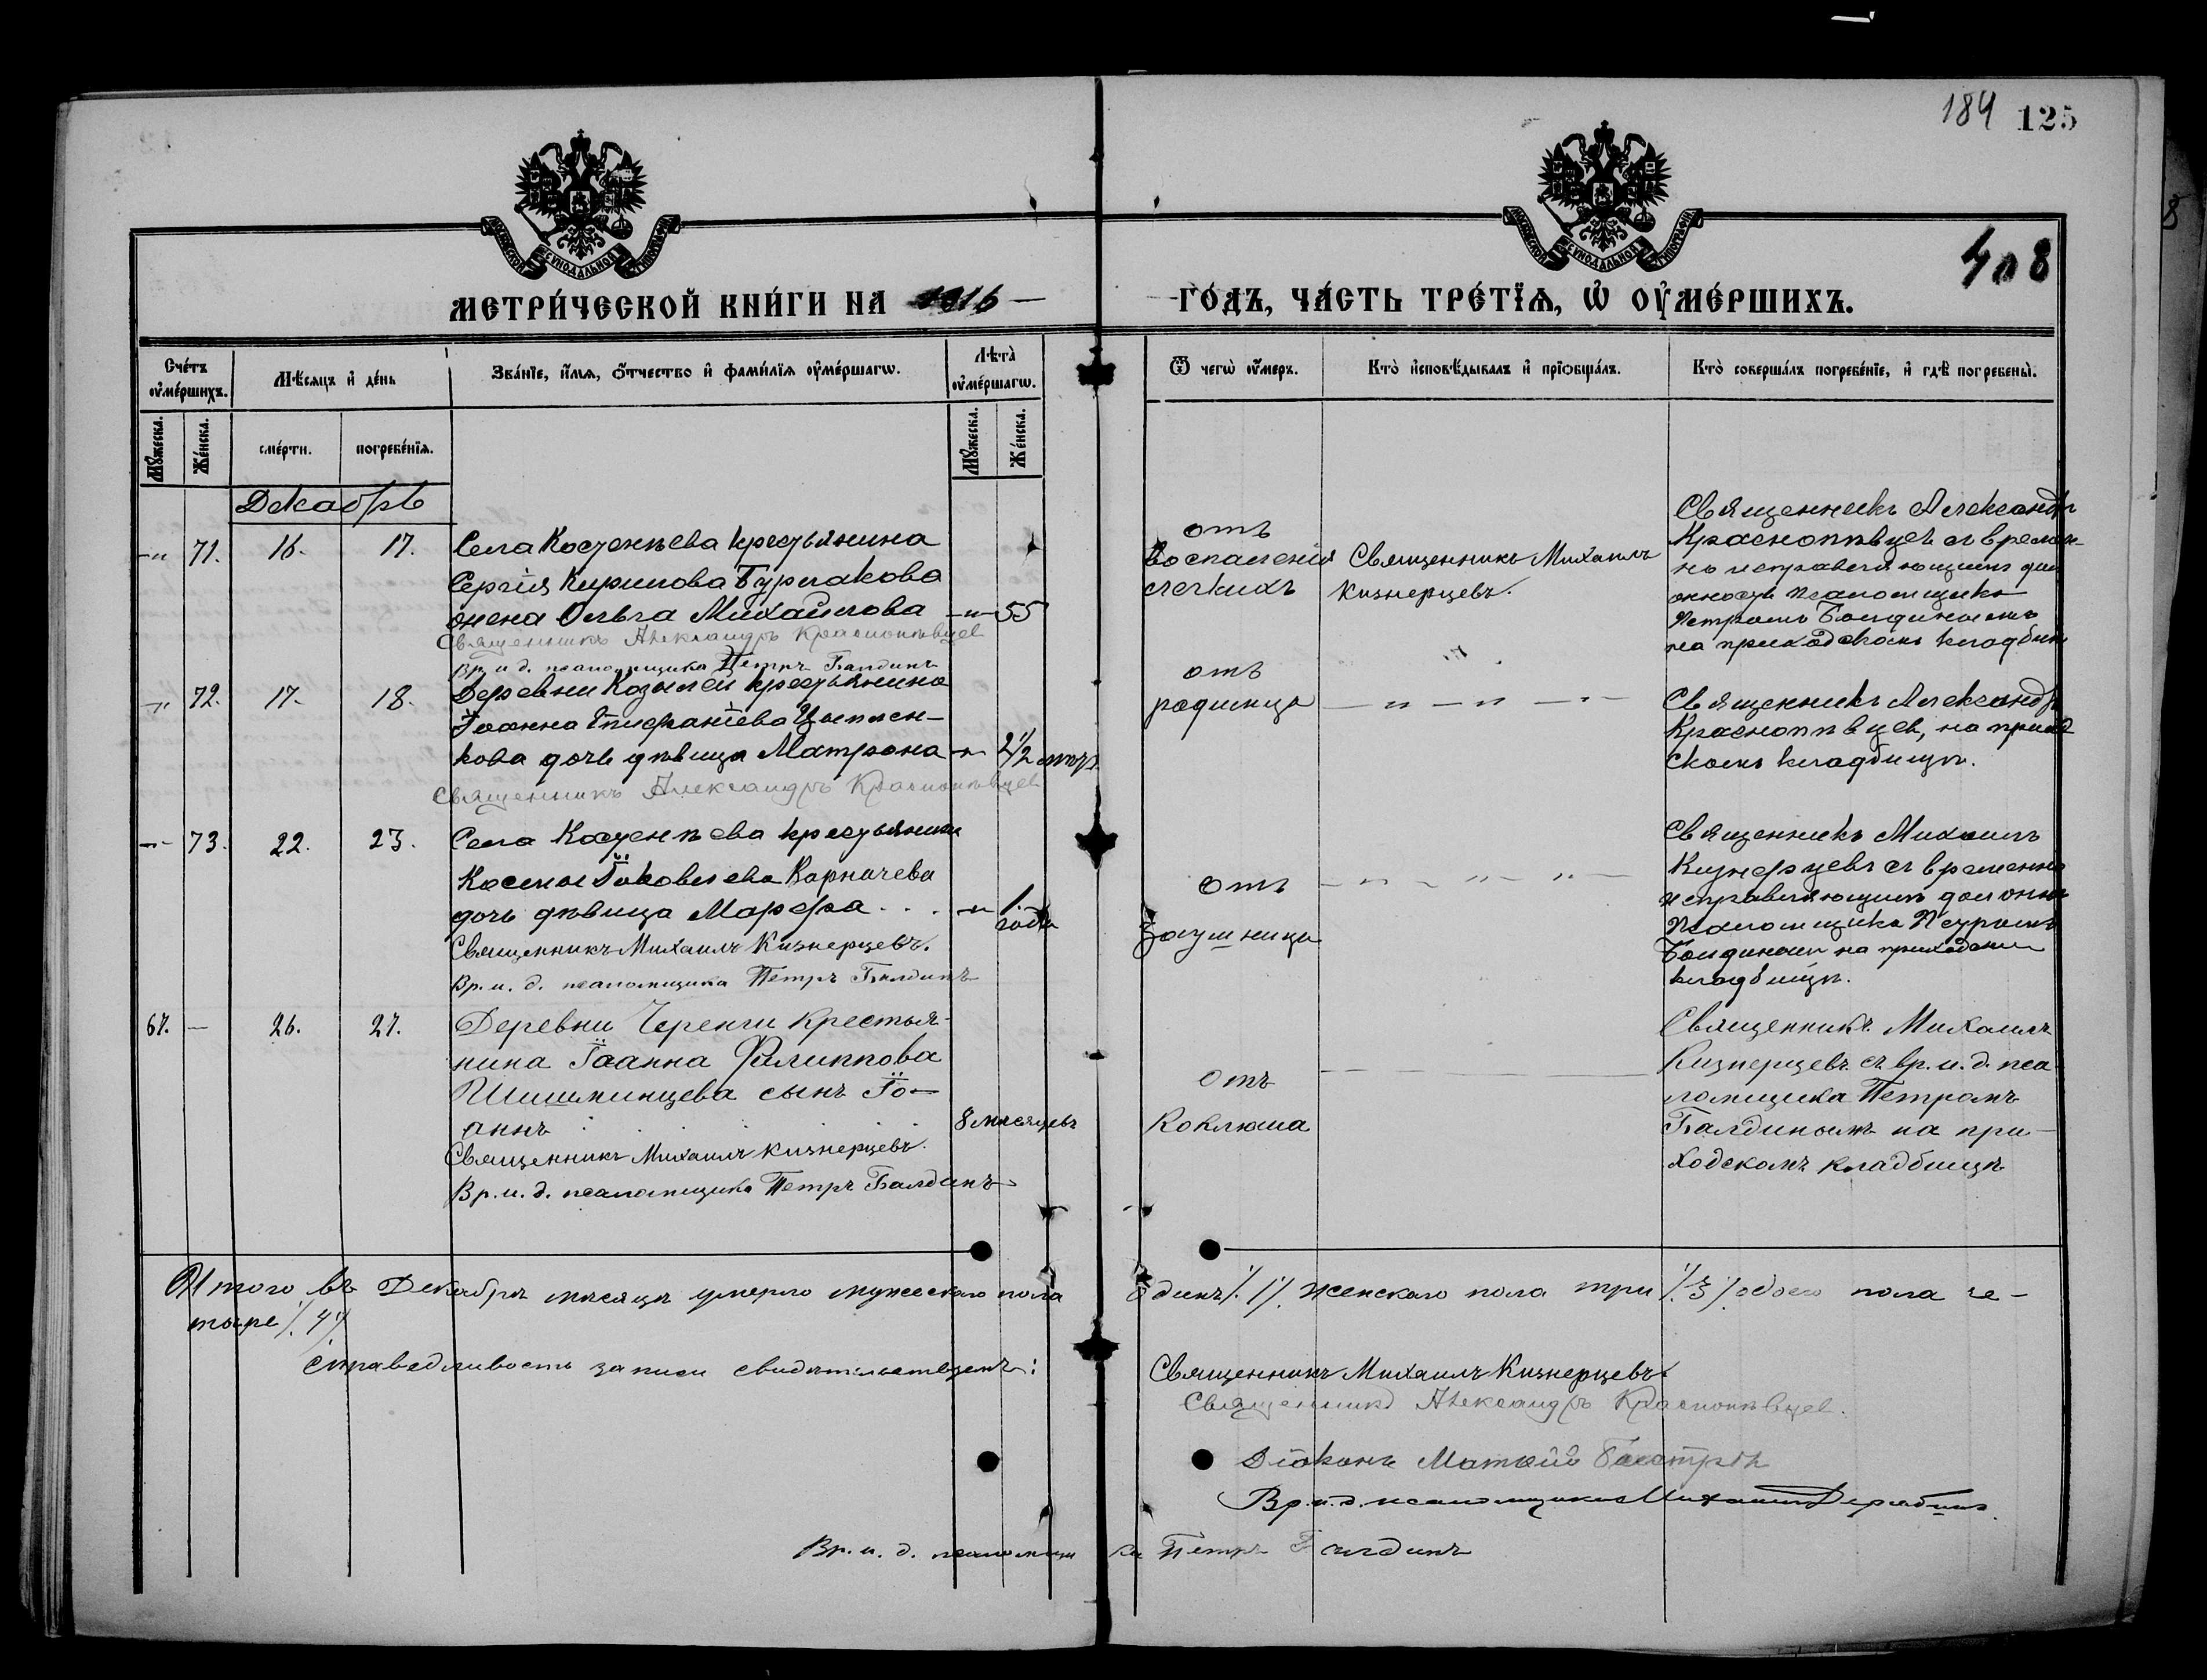 184 125
408
МЕТРИ́ЧЕСКОЙ КНИ́ГИ НА 1916 — ГО́ДЪ, ЧА́СТЬ ТРЕ́ТЇѦ, Ѡ҆ ОУ҆МЕ́РШИХЪ.
Сче́тъ оу҆ме́ршихъ.
Мѣ́сяцъ и҆ де́нь
Зва́нїе, и҆́мя, ѻ҆́тчество и҆ фами́лїя оу҆ме́ршагѡ.
Лѣ́та оу҆ме́ршагѡ.
Ѿ чегѡ̀ оу҆́меръ.
Кто̀ и҆сповѣ́дывалъ и҆ прїѻбща́лъ.
Кто̀ соверша́лъ погребе́нїе, и҆ гдѣ̀ погребены̀.
Мꙋ́жеска.
Же́нска.
сме́рти.
погребе́нїя.
Мꙋ́жеска.
Же́нска.
Декабрь
-"- 71. 16. 17.
Села Костенѣева крестьянина
Сергія Кирилова Бурлакова
жена Ольга Михайлова -"- 55
Священникъ Александръ Краснопѣвцев
Вр. и. д. псаломщика Петръ Балдинъ
отъ
воспаленія
легкихъ
Священникъ Михаилъ
Кизнерцевъ.
Священникъ Александръ
Краснопѣвцевъ съ времен-
но исправляющимъ дол
жность псаломщика
Петромъ Балдинымъ
на приходскомъ кладбищѣ
-"- 72. 17. 18.
Деревни Козылей крестьянина
Іоанна Епифаніева Цыплен-
кова дочь дѣвица Матрона -"- 2 1/2 мѣсяц.
Священникъ Александръ Краснопѣвцев
отъ
родимца
— " — " — " —
Священникъ Александръ
Краснопѣвцев, на приход
скомъ кладбищѣ.
-"- 73. 22. 23.
Села Костенѣева крестьянина
Космы Іаковлева Карпачева
дочь дѣвица Марфа . . . -"- 1. года
Священникъ Михаилъ Кизнерцевъ.
Вр. и. д. псаломщика Петръ Балдинъ
отъ
заушницы
— " — " — " —
Священникъ Михаилъ
Кизнерцевъ съ временно
исправляющимъ должн
псаломщика Петромъ
Балдинымъ на приходском
кладбищѣ.
67. — 26. 27.
Деревни Черенги крестья-
нина Іоанна Филиппова
Шишминцева сынъ Іо-
аннъ . . . . . 8 мѣсяцевъ
Священникъ Михаилъ Кизнерцевъ.
Вр. и. д. псаломщика Петръ Балдинъ
отъ
коклюша
Священникъ Михаилъ
Кизнерцевъ съ вр. и. д. пса
ломщика Петромъ
Балдинымъ на при-
ходскомъ кладбищѣ
Итого въ Декабрѣ мѣсяцѣ умерло мужескаго пола одинъ /.1./ женскаго пола три /.3./ обоего пола че-
тыре /.4./
Справедливость записи свидѣтельствуемъ:
Священникъ Михаилъ Кизнерцевъ
Священникъ Александръ Краснопѣвцев.
Діаконъ Матѳій
Вр. и. д. псаломщика Михаилъ Дерябинъ.
Вр. и. д. псаломщика Петръ Балдинъ